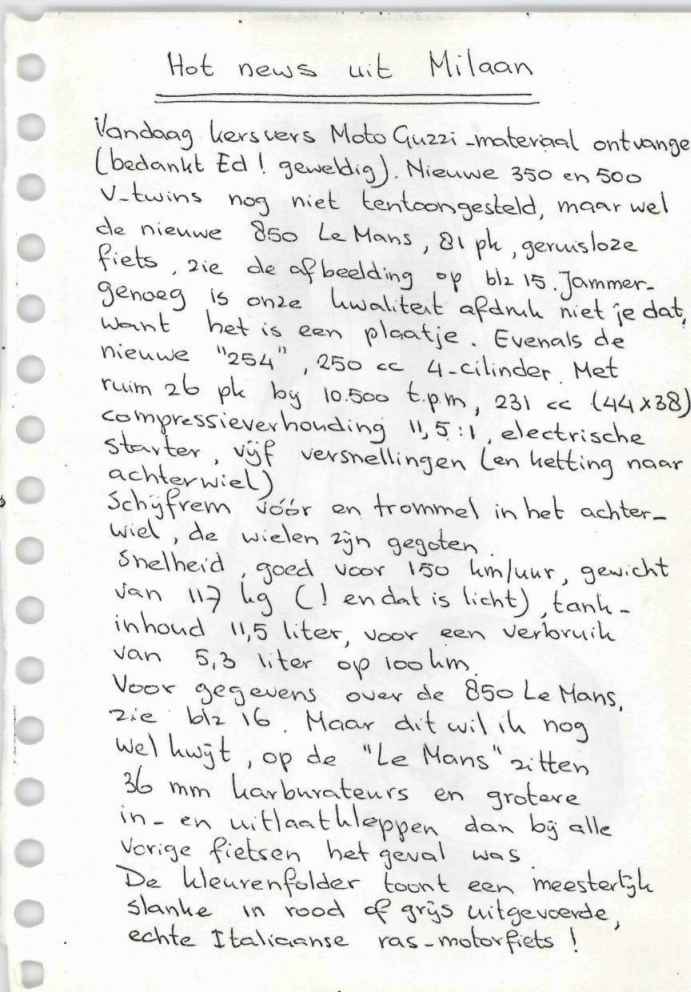 Hot news uit Milaan
Vandaag kersvers Moto Guzzi-materiaal ontvange
(bedankt Ed! geweldig). Nieuwe 350 en 500
V-twins nog niet tentoongesteld, maar wel
de nieuwe 850 Le Mans, 81 pk, geruisloze
fiets, zie de afbeelding op blz 15. Jammer-
genoeg is onze kwaliteit afdruk niet je dat,
want het is een plaatje. Evenals de
nieuwe "254", 250 cc 4-cilinder. Met
ruim 26 pk by 10.500 t.p.m, 231 cc (44x38)
compressieverhouding 11,5:1, electrische
starter, vijf versnellingen (en ketting naar
achterwiel)
Schijfrem vóór en trommel in het achter-
wiel, de wielen zijn gegoten.
Snelheid, goed voor 150 km/uur, gewicht
van 117 kg (! en dat is licht), tank-
inhoud 11,5 liter, voor een verbruik
van 5,3 liter op 100 km.
Voor gegevens over de 850 Le Mans,
zie blz 16. Maar dit wil ik nog
wel kwijt, op de "Le Mans" zitten
36 mm karburateurs en grotere
in- en uitlaatkleppen dan bij alle
vorige fietsen het geval was.
De kleurenfolder toont een meesterlijk
slanke in rood of grijs uitgevoerde,
echte Italiaanse ras-motorfiets!